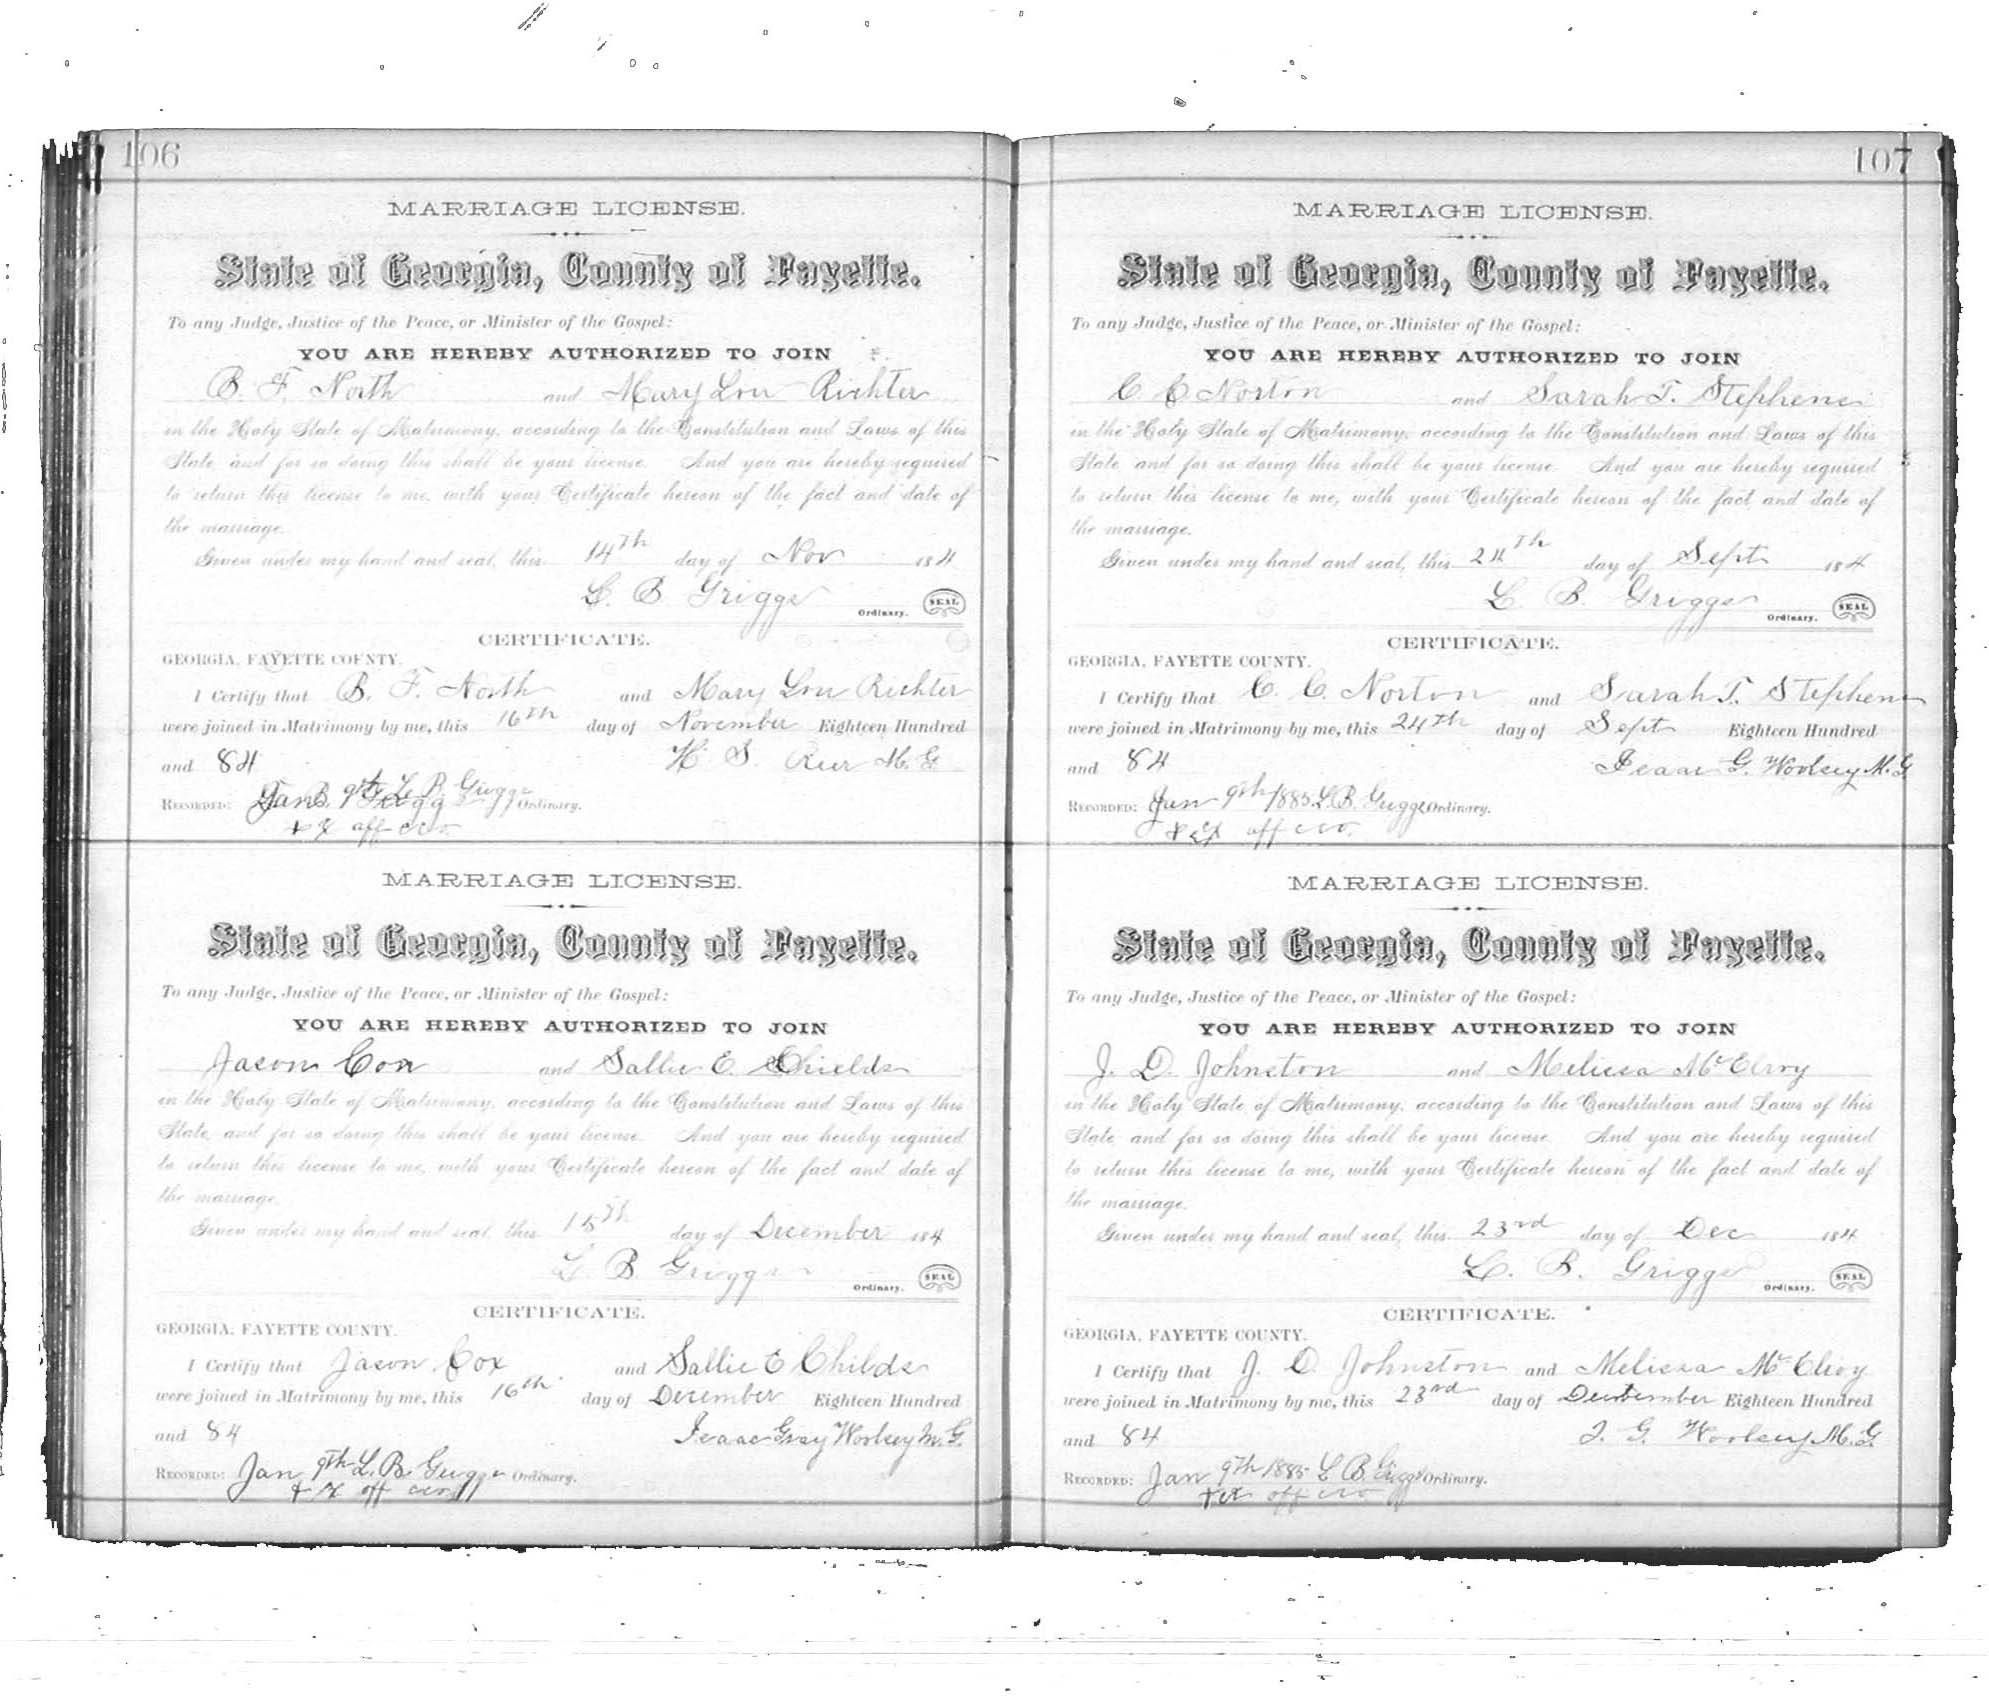 106
MARRIAGE LICENSE.
State of Georgia, County of Fayette.
To any Judge, Justice of the Peace, or Minister of the Gospel:
YOU ARE HEREBY AUTHORIZED TO JOIN
B. F. North and Mary Lou Richter
in the Holy State of Matrimony, according to the Constitution and Laws of this
State, and for so doing this shall be your license. And you are hereby required
to return this license to me, with your Certificate hereon of the fact and date of
the marriage.
Given under my hand and seal, this 14th day of Nov 184
L. B Griggs
Ordinary. SEAL
CERTIFICATE.
GEORGIA, FAYETTE COUNTY.
I Certify that B. F. North and Mary Lou Richter
were joined in Matrimony by me, this 16th day of November Eighteen Hundred
and 84 H. S. M. G
RECORDED: Jan 9th L. B Griggs Ordinary.
off cio.
MARRIAGE LICENSE.
State of Georgia, County of Fayette.
To any Judge, Justice of the Peace, or Minister of the Gospel:
YOU ARE HEREBY AUTHORIZED TO JOIN
Jason Cox and Sallie E. Childs
in the Holy State of Matrimony, according to the Constitution and Laws of this
State, and for so doing this shall be your license. And you are hereby required
to return this license to me, with your Certificate hereon of the fact and date of
the marriage.
Given under my hand and seal, this 15th day of December 184
L. B Griggs
Ordinary. SEAL
CERTIFICATE.
GEORGIA, FAYETTE COUNTY.
I Certify that Jason Cox and Sallie E Childs
were joined in Matrimony by me, this 16th day of December Eighteen Hundred
and 84 Isaac Gray Woolsey M. G.
RECORDED: Jan 9th L. B. Griggs Ordinary.
& x off cio
107
MARRIAGE LICENSE.
State of Georgia, County of Fayette.
To any Judge, Justice of the Peace, or Minister of the Gospel:
YOU ARE HEREBY AUTHORIZED TO JOIN
C C Norton and Sarah T. Stephens
in the Holy State of Matrimony, according to the Constitution and Laws of this
State, and for so doing this shall be your license. And you are hereby required
to return this license to me, with your Certificate hereon of the fact and date of
the marriage.
Given under my hand and seal, this 24th day of Sept 184
L. B. Griggs
Ordinary. SEAL
CERTIFICATE.
GEORGIA, FAYETTE COUNTY.
I Certify that C. C. Norton and Sarah T. Stephens
were joined in Matrimony by me, this 24th day of Sept Eighteen Hundred
and 84 Isaac G. Woolsey M. G
RECORDED: Jan 9th 1885 L. B. Griggs Ordinary.
& ex off cio.
MARRIAGE LICENSE.
State of Georgia, County of Fayette.
To any Judge, Justice of the Peace, or Minister of the Gospel:
YOU ARE HEREBY AUTHORIZED TO JOIN
J. D. Johnston and Melissa McElroy
in the Holy State of Matrimony, according to the Constitution and Laws of this
State, and for so doing this shall be your license. And you are hereby required
to return this license to me, with your Certificate hereon of the fact and date of
the marriage.
Given under my hand and seal, this 23rd day of Dec 184
L. B. Griggs
Ordinary. SEAL
CERTIFICATE.
GEORGIA, FAYETTE COUNTY.
I Certify that J. D. Johnston and Melissa McElroy
were joined in Matrimony by me, this 23rd day of December Eighteen Hundred
and 84 I. G. Woolsey M. G
RECORDED: Jan 9th 1885 L B Griggs Ordinary.
& ex off cio